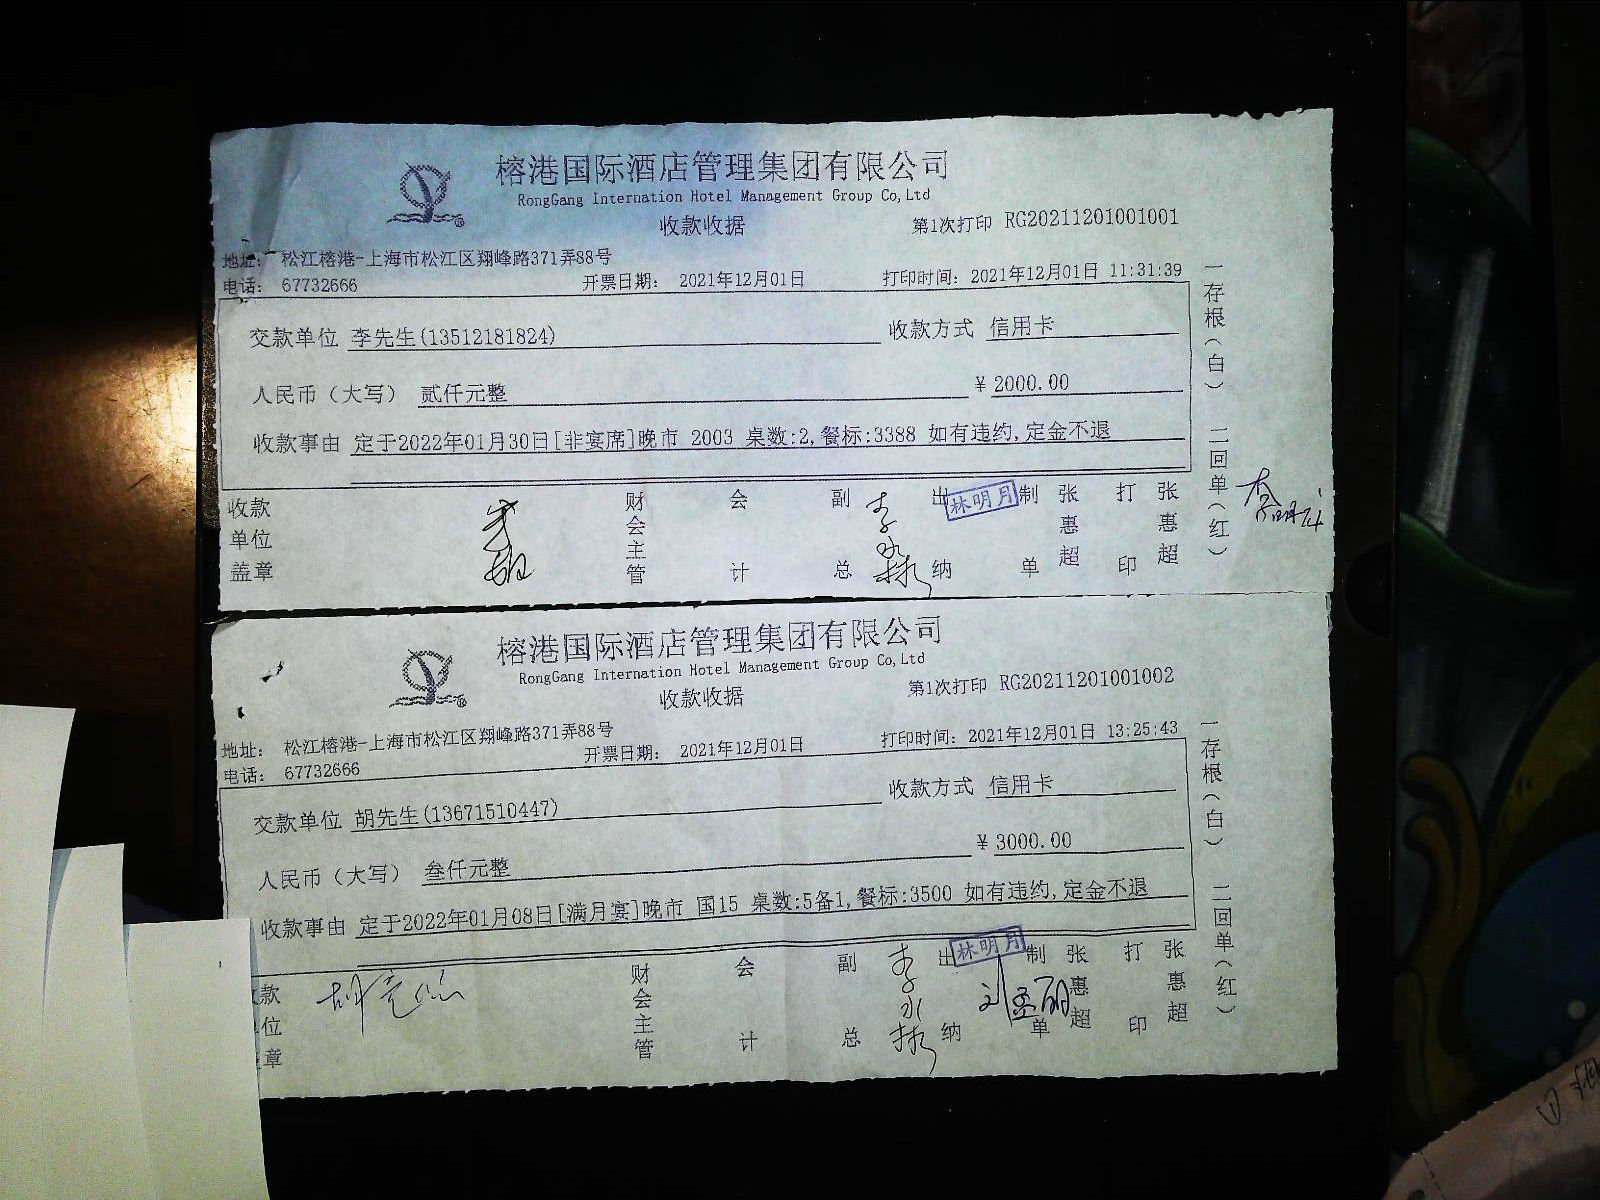 榕港国际酒店管理集团有限公司
RongGang Internation Hotel Management Group Co,Ltd
收款收据
第1次打印 RG20211201001001
地址: 松江榕港-上海市松江区翔峰路371弄88号
电话: 67732666
开票日期: 2021年12月01日
打印时间: 2021年12月01日 11:31:39
交款单位 李先生(13512181824)
收款方式 信用卡
人民币(大写) 贰仟元整
¥ 2000.00
收款事由 定于2022年01月30日[非宴席]晚市 2003 桌数:2,餐标:3388 如有违约,定金不退
收款单位盖章
财会主管
会计
副总
出纳
林明月
制单
张惠超
打印
张惠超
一存根(白) 二回单(红)
榕港国际酒店管理集团有限公司
RongGang Internation Hotel Management Group Co,Ltd
收款收据
第1次打印 RG20211201001002
地址: 松江榕港-上海市松江区翔峰路371弄88号
电话: 67732666
开票日期: 2021年12月01日
打印时间: 2021年12月01日 13:25:43
交款单位 胡先生(13671510447)
收款方式 信用卡
人民币(大写) 叁仟元整
¥ 3000.00
收款事由 定于2022年01月08日[满月宴]晚市 国15 桌数:5备1,餐标:3500 如有违约,定金不退
款位章
财会主管
会计
副总
出纳
林明月
制单
张惠超
打印
张惠超
一存根(白) 二回单(红)